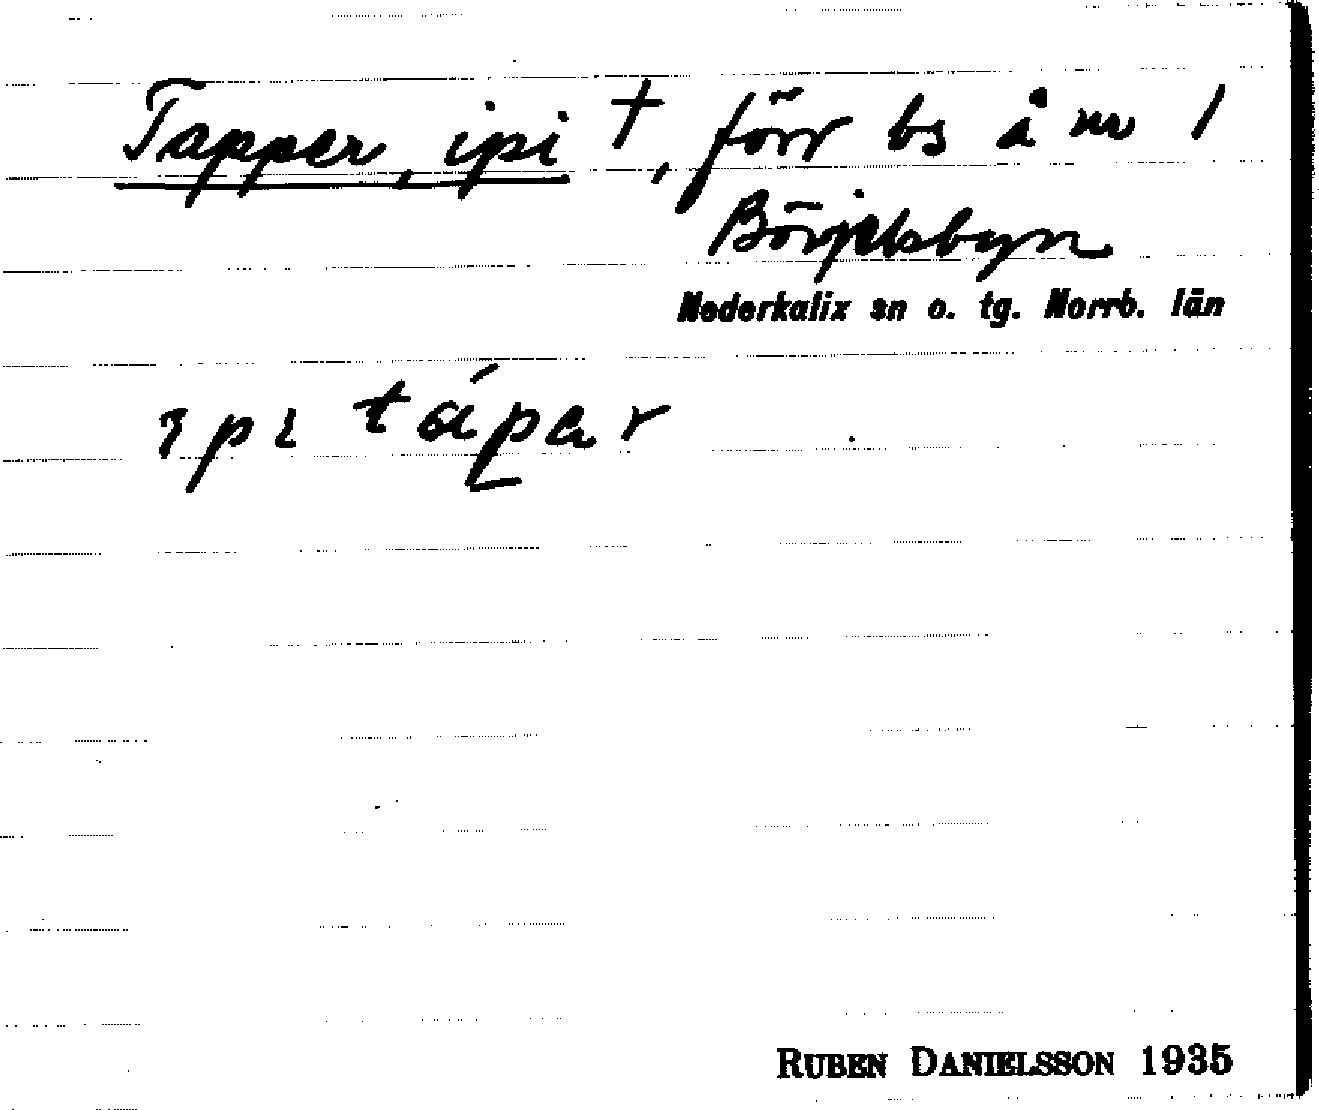 Tapper, ipi †, förr bs å nr 1
Börjelsbyn
Nederkalix sn o. tg. Norrb. län
ɩpɩ tápar
RUBEN DANIELSSON 1935